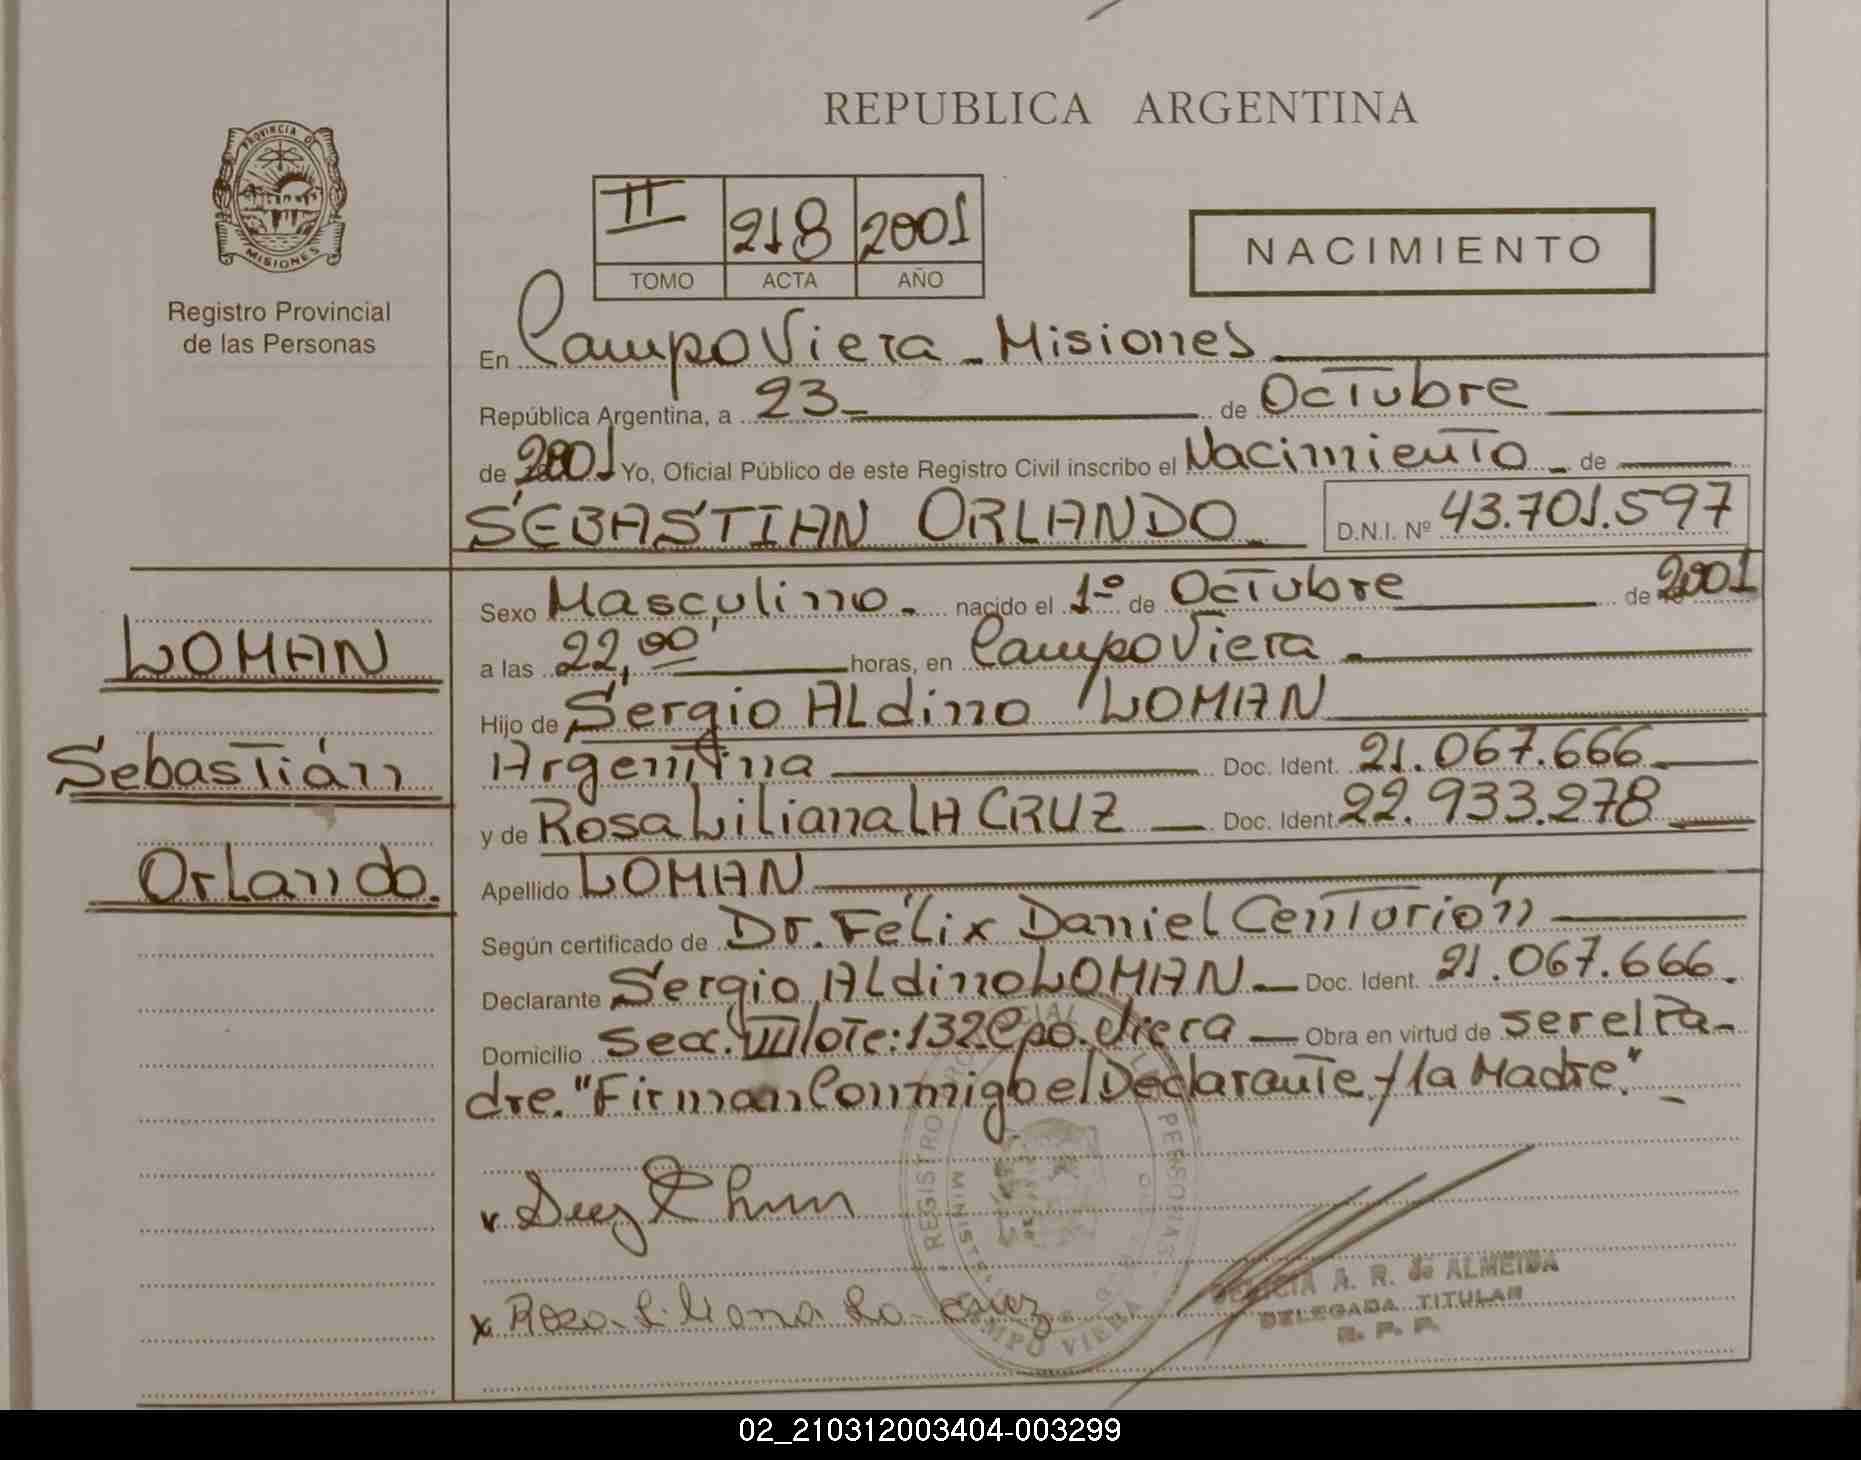 REPUBLICA ARGENTINA
PROVINCIA DE
MISIONES
Registro Provincial
de las Personas
II 218 2001
TOMO ACTA AÑO
NACIMIENTO
En Campo Viera - Misiones
República Argentina, a 23 de Octubre
de 2001 Yo, Oficial Público de este Registro Civil inscribo el Nacimiento - de
SEBASTIAN ORLANDO D.N.I. Nº 43.701.597
Sexo Masculino. nacido el 1º de Octubre de 2001
a las 22,00 horas, en Campo Viera
Hijo de Sergio Aldino LOMAN
Argentina Doc. Ident. 21.067.666
y de Rosa Liliana LA CRUZ Doc. Ident. 22.933.278
Apellido LOMAN
Según certificado de Dr. Félix Daniel Centurión
Declarante Sergio Aldino LOMAN Doc. Ident. 21.067.666.
Domicilio Secc. VIII lote: 132 Cpo. Viera Obra en virtud de ser el Pa-
dre. "Firman Conmigo el Declarante y la Madre."
LOMAN
Sebastián
Orlando.
x Rosa Liliana La cruz
REGISTRO PERSONAS
CAMPO VIERA
A. R. de ALMEIDA
DELEGADA TITULAR
R. P. P.
02_210312003404-003299